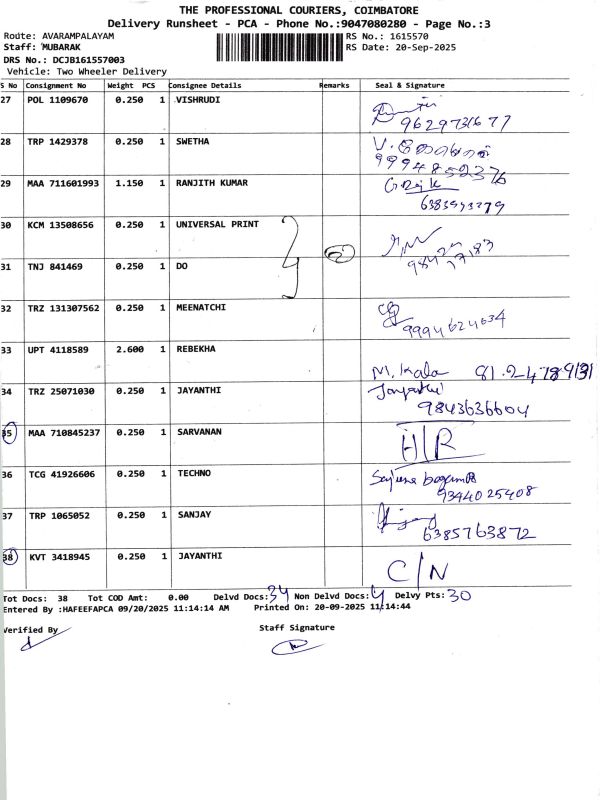 THE PROFESSIONAL COURIERS, COIMBATORE
Delivery Runsheet - PCA - Phone No.:9047080280 - Page No.:3
Route: AVARAMPALAYAM RS No.: 1615570
Staff: MUBARAK RS Date: 20-Sep-2025
DRS No.: DCJB161557003
Vehicle: Two Wheeler Delivery
S No Consignment No Weight PCS Consignee Details Remarks Seal & Signature
27 POL 1109670 0.250 1 VISHRUDI
9629731677
28 TRP 1429378 0.250 1 SWETHA
9994852376
29 MAA 711601993 1.150 1 RANJITH KUMAR
6383993279
30 KCM 13508656 0.250 1 UNIVERSAL PRINT
2
31 TNJ 841469 0.250 1 DO
32 TRZ 131307562 0.250 1 MEENATCHI
9994624634
33 UPT 4118589 2.600 1 REBEKHA
M. Kala
34 TRZ 25071030 0.250 1 JAYANTHI Jayanthi
9843636604
35 MAA 710845237 0.250 1 SARVANAN H/R
36 TCG 41926606 0.250 1 TECHNO
9344025408
37 TRP 1065052 0.250 1 SANJAY
6385763872
38 KVT 3418945 0.250 1 JAYANTHI C/N
Tot Docs: 38 Tot COD Amt: 0.00 Delvd Docs: 34 Non Delvd Docs: 4 Delvy Pts: 30
Entered By :HAFEEFAPCA 09/20/2025 11:14:14 AM Printed On: 20-09-2025 11:14:44
Verified By Staff Signature